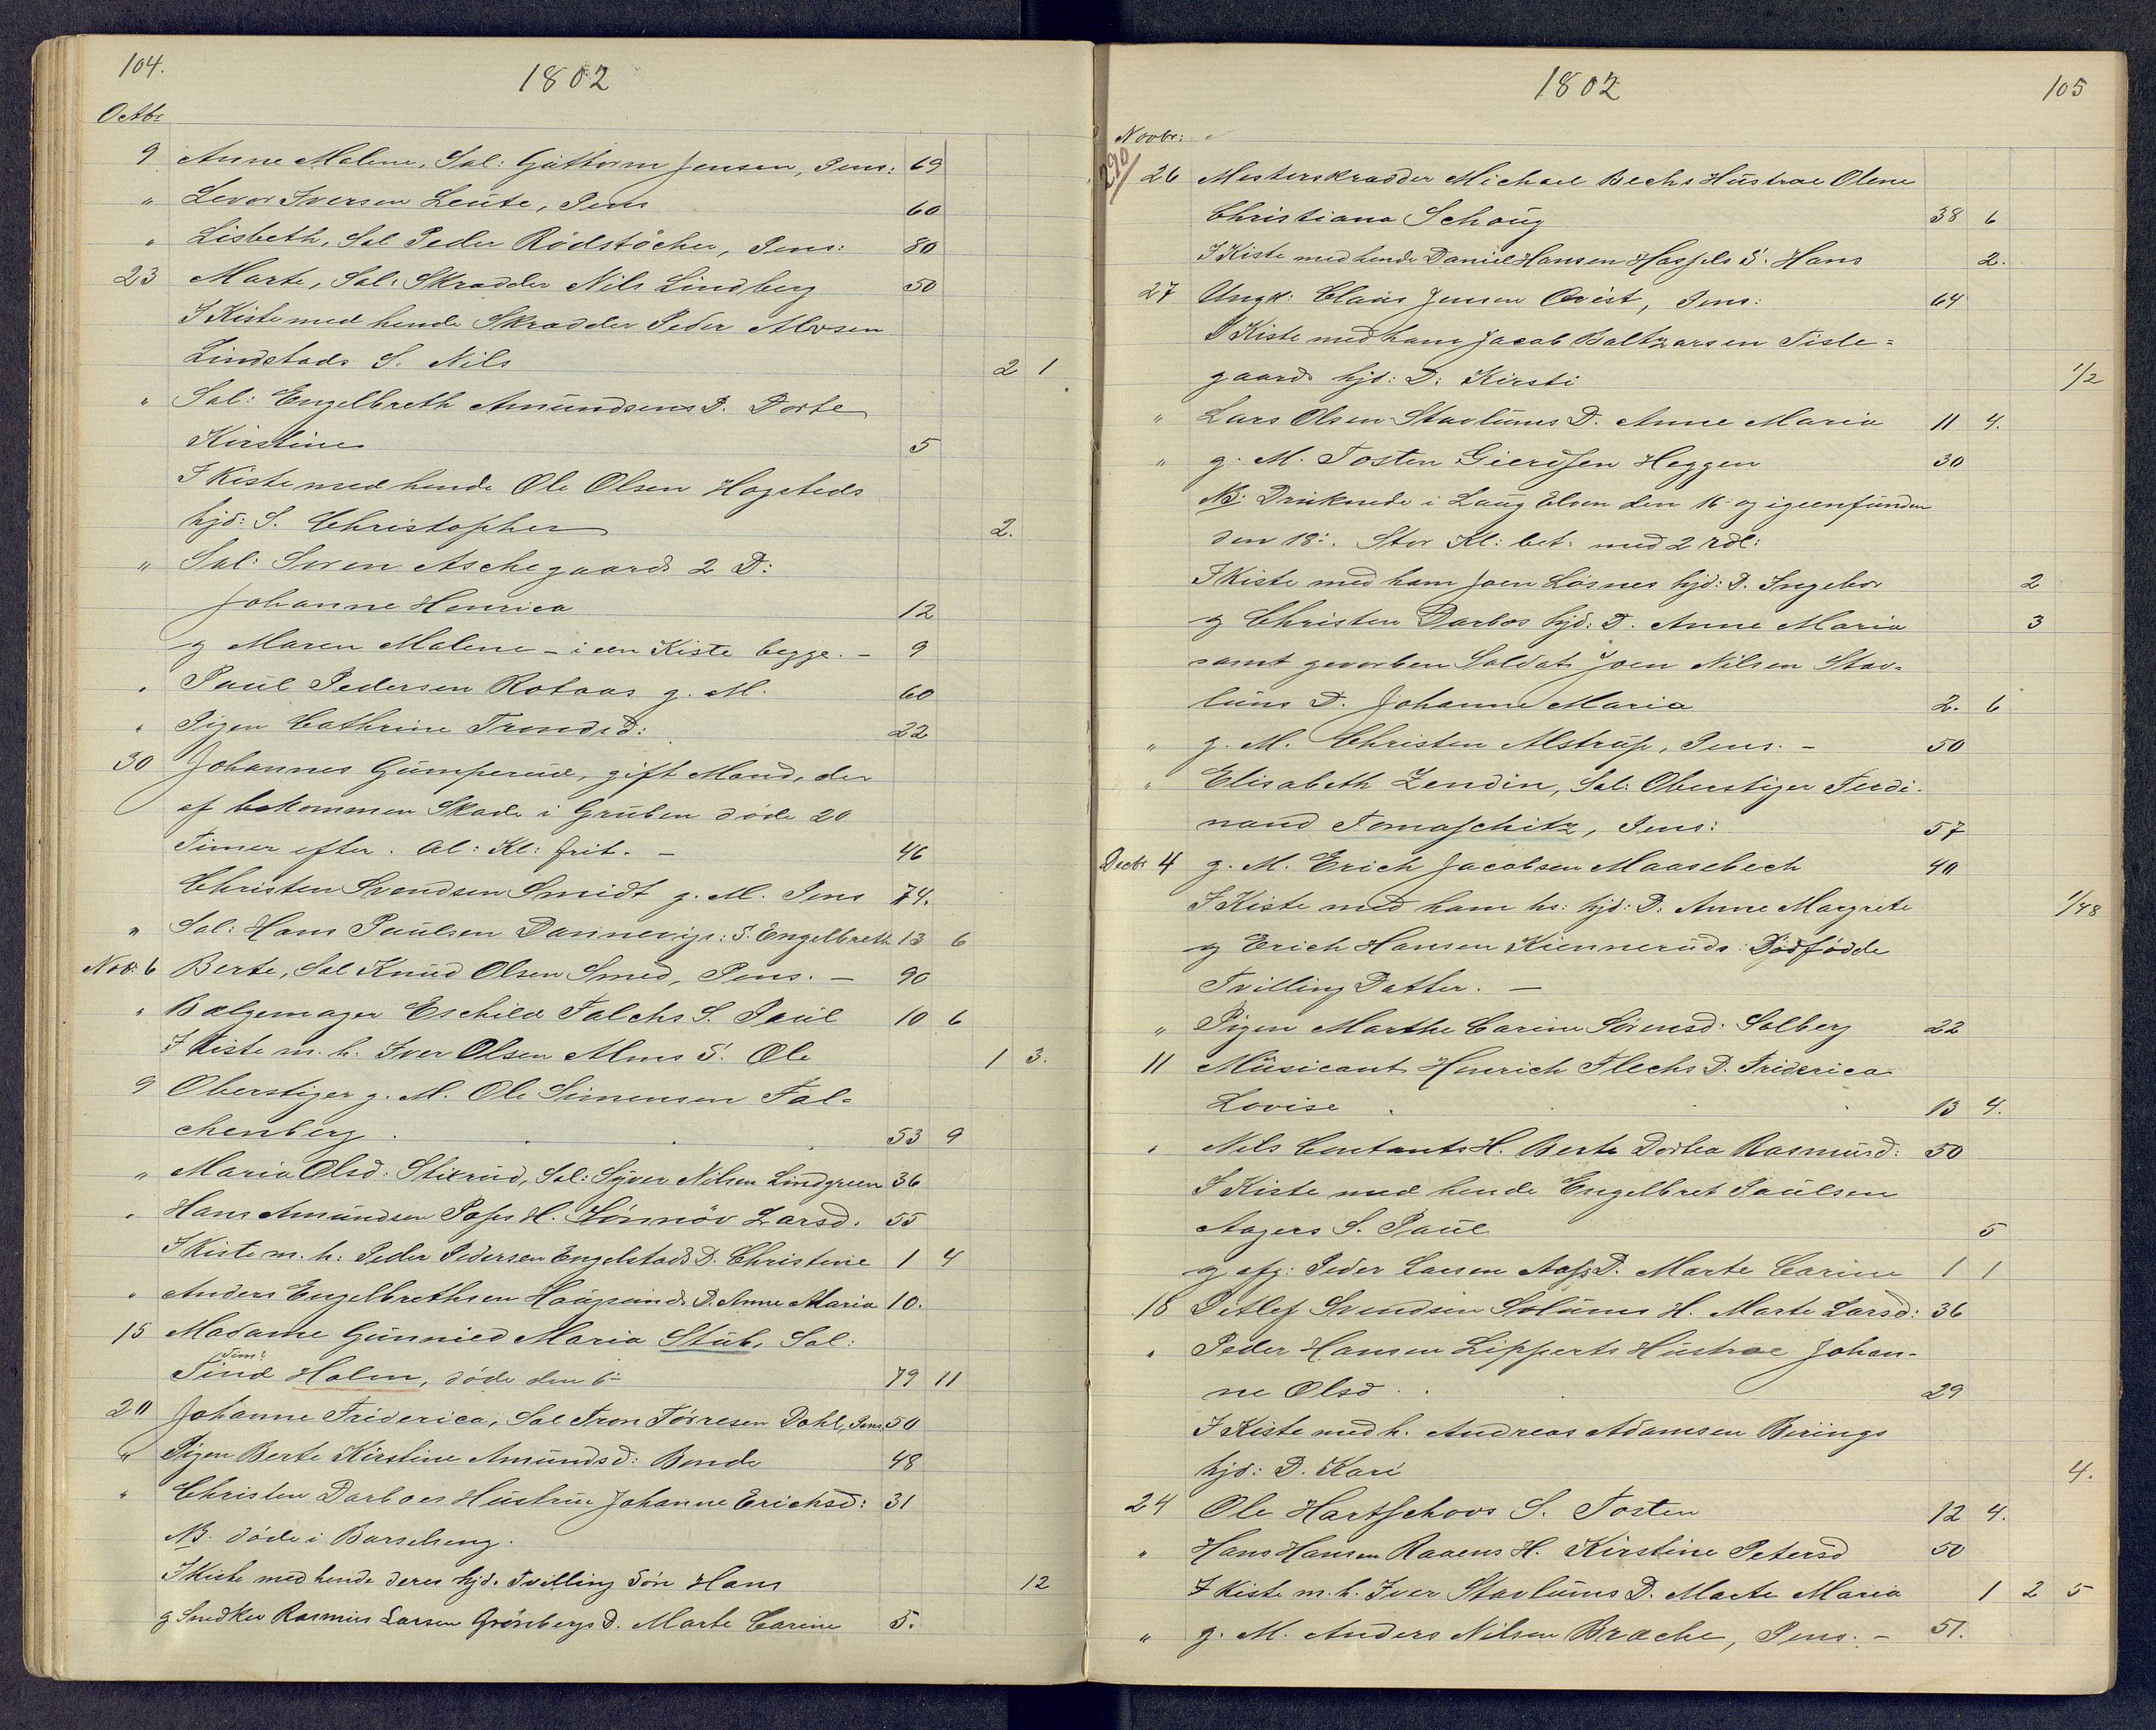 104.
1802
Octbr
9 Anne Malene, Sal: Guttorm Jensen, Pens: 69
" Levor Iversen Leute, Pens 60
" Lisbeth, Sal Peder Rödstöcher, Pens: 80
23 Marte, Sal: Skradder Nils Lindberg 50
I Kiste med hende Skradder Peder Alvsen
Lindstads S. Nils 2 1
" Sal: Engelbreth Amundsens D. Dorte
Kirstine 5
I Kiste med hende Ole Olsen Hagsteds
hjd: S. Christopher 2.
" Sal: Soren Aschegaards 2 D:
Johanne Henrica 12
og Maren Malene - i een Kiste begge. - 9
" Paul Pedersen Rotaas g. M. 60
" Pigen Cathrine Tronds D: 22
30 Johannes Gumperud, gift Mand, der
af bekommen Skade i Gruben döde 20
Timer efter. Al: Kl: frit. - 46
Christen Svendsen Smidt g. M. Pens 74.
" Sal: Hans Paulsen Dannevigs: S. Engelbreth 13 6
Nov: 6 Berte, Sal Knud Olsen Smed, Pens. - 90
" Bælgemager Eschild Falchs S. Paul 10 6
I Kiste m. h. Iver Olsen Alms S. Ole 1 3.
9 Oberstiger g. M. Ole Simensen Fal-
chenberg. 53 9
" Maria Olsd: Stixrud, Sal: Syver Nilsen Lindgreen 36
" Hans Amundsen Poses H. Sönnöv Larsd. 55
I Kiste m. h: Peder Pedersen Engelstads D. Christine 1 4
" Anders Engelbrethsen Haugsunds D. Anne Maria 10.
15 Madame Gunnild Maria Stub, Sal:
Tind Holm, döde den 6- 79 11
20 Johanne Friderica, Sal Tron Törresen Dahl, Pens. 50
" Pigen Berte Kirstine Amundsd: Bonde 48
" Christen Darboes Hustrue Johanne Erichsd: 31
NB. döde i Barselseng.
I Kiste med hende deres hjd. Tvilling Sön Hans 12
og Snedker Rasmus Larsen Grönbergs D. Marte Carine 5.
1802
105
Novbr:
290/
26 Mesterskradder Michael Bechs Hustrue Olene
Christiana Schoug 38 6
I Kiste med hende Daniel Hansen Hassels S. Hans 2.
27 Ungk: Claus Jensen Qvist, Pens: 64
I Kiste med ham Jacob Baltzarsen Tisle-
gaards hjd: D: Kirsti 1/2
" Lars Olsen Stavlums D. Anne Maria 11 4.
" g. M. Tosten Gierdsen Heggen 30
NB: Druknede i Laug Elven den 16- og igeenfunden
den 18-. Stor Kl: bet. med 2 rdl:
I Kiste med ham Joen Lösnes hjd: D. Ingebor 2
og Christen Darbos hjd: D. Anne Maria 3
samt gevorben Soldat Joen Nilsen Stav-
lums D. Johanne Maria 2. 6
" g. M. Christen Alstrup, Pens. - 50
" Elisabeth Zendin, Sal: Oberstiger Ferdi-
nand Tomaschitz, Pens: 57
Decbr 4 g. M. Erich Jacobsen Maasebech 40
I Kiste med ham hs: hjd: D: Anne Margrete 1/48
og Erich Hansen Kienneruds: Dødfødde
Tvilling Datter. -
" Pigen Marthe Carine Sörensd: Solberg 22
11 Musicant Henrich Flechs D. Friderica
Lovise 13 4.
" Nils Contants H. Berte Dortea Rasmusd: 50
I Kiste med hende Engelbret Paulsen
Aagers S. Paul 5
og afg: Peder Larsen Aass D. Marte Carine 1 1
18 Ditlef Svendsen Solums H. Marte Larsd: 36
" Peder Hansen Lipperts Hustrue Johan-
ne Olsd. 29
I Kiste med h. Andreas Adamsen Birings
hjd: D. Kari 4.
24 Ole Hartschovs S. Tosten 12 4.
" Hans Hansen Raaens H. Kirstine Petersd 50
I Kiste m. h. Iver Stavlums D. Marte Maria 1 2 5
" g. M. Anders Nilsen Brache, Pens. - 51.